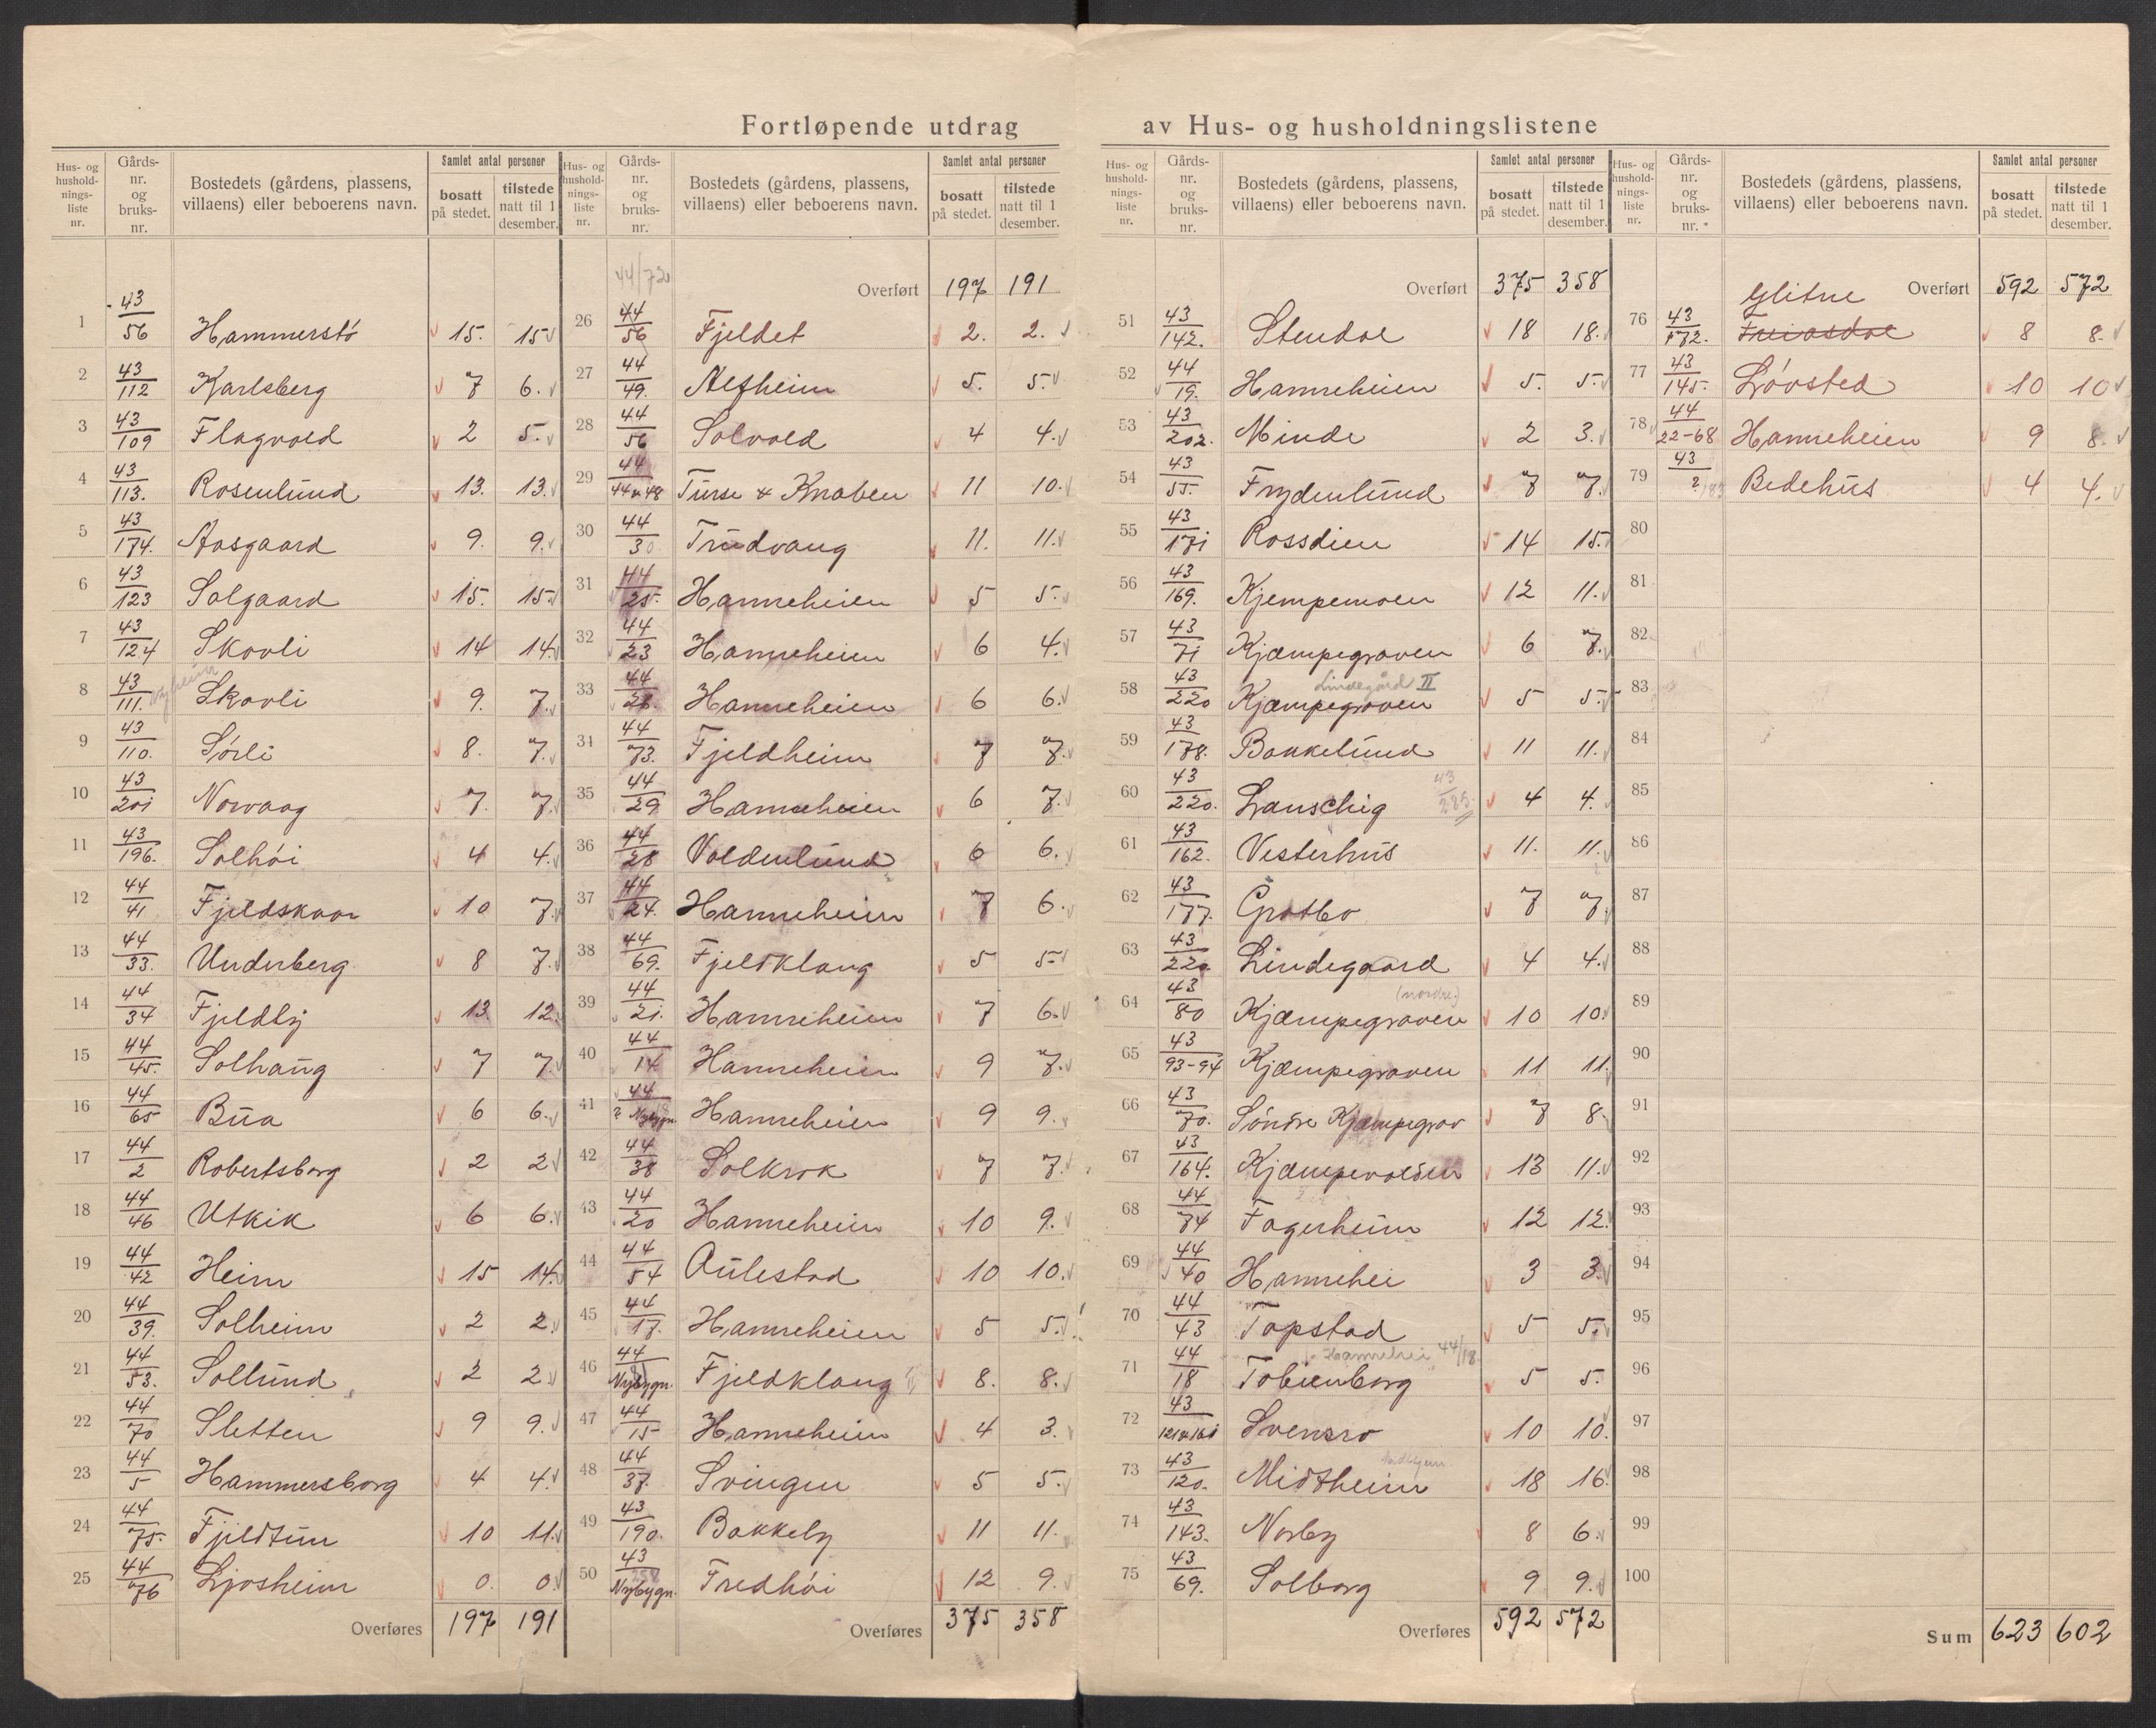 Fortløpende utdrag av Hus- og husholdningslistene
Hus- og husholdningsliste nr. | Gårdsnr. og bruksnr. | Bostedets (gårdens, plassens, villaens) eller beboerens navn. | Samlet antal personer: bosatt på stedet. | tilstede natt til 1 desember.
1 43/56 Hammerstö 15. 15
2 43/112 Karlsberg 7 6.
3 43/109 Flagvold 2 5.
4 43/113. Rosenlund 13. 13.
5 43/174. Aasgaard 9. 9.
6 43/123 Solgaard 15. 15
7 43/124 Skovli 14 14.
8 43/111. Skovli 9. 7.
9 43/110. Sörli 8. 7.
10 43/201 Norvaag 7. 7.
11 43/196. Solhöi 4 4.
12 44/41 Fjeldskaar 10 7.
13 44/33. Underberg 8 7.
14 44/34 Fjeldby 13. 12.
15 44/45. Solhaug 7 7.
16 44/65 Bua 6 6.
17 44/2 Robertsborg 2 2
18 44/46 Utkik 6 6.
19 44/42 Heim 15 14.
20 44/39. Solheim 2 2.
21 44/53. Sollund 2 2.
22 44/70 Sletten 9 9.
23 44/5 Hammersborg 4 4.
24 44/75. Fjeldtun 10 11.
25 44/76 Ljosheim 0. 0.
Overføres 197 191
44/720
Overført 197 191
26 44/56 Fjeldet 2. 2.
27 44/49. Alfheim 5. 5.
28 44/56 Solvold 4 4.
29 44/44 & 48 Turse & Knaben 11 10.
30 44/30 Trudvang 11. 11.
31 44/25. Hanneheien 5 5.
32 44/23 Hanneheien 6 4.
33 44/26. Hanneheien 6 6.
34 44/73. Fjeldheim 7 7.
35 44/29 Hanneheien 6 7.
36 44/28 Voldenlund 6 6.
37 44/24. Hanneheien 7 6.
38 44/69. Fjeldklang 5 5
39 44/21. Hanneheien 7 6.
40 44/14 Hanneheien 9 7.
41 44/? Nybygn. Hanneheien 9 9.
42 44/38 Solkrok 7 7.
43 44/20 Hanneheien 10 9.
44 44/54 Aulestad 10 10.
45 44/17. Hanneheien 5 5.
46 44/Nybygn. Fjeldklang 8. 8.
47 44/15 Hanneheien 4 3.
48 44/37. Svingen 5 5.
49 43/190. Bakkely 11 11.
50 43/Nybygn. Fredhöi 12 9.
Overføres 375 358
Overført 375 358
51 43/142. Stendal 18 18.
52 44/19. Hanneheien 5. 5.
53 43/202. Minde 2 3.
54 43/55. Frydenlund 7 7.
55 43/171 Rossdien 14 15.
56 43/169. Kjempemoen 12 11.
57 43/71 Kjæmpegraven 6 7.
58 43/220 Kjæmpegraven Lindegård II 5 5.
59 43/178. Bakkelund 11 11.
60 43/220. Lauschig 43/285. 4 4.
61 43/162. Vesterhus 11. 11.
62 43/177. Grotbo 7 7.
63 43/220. Lindegaard 4 4.
64 43/80 Kjæmpegraven (nordre) 10 10.
65 43/93-94 Kjæmpegraven 11 11.
66 43/70. Söndre Kjæmpegrav 7 8.
67 43/164. Kjæmpevolden 13 11.
68 44/74 Fagerheim 12 12.
69 44/40 Hannehei 3 3.
70 44/43 Topstad 5 5.
71 44/18 Tobienborg Hannehei 44/18. 5 5.
72 43/121 & 161 Svensro 10 10.
73 43/120. Midtheim 18 16.
74 43/143. Norby 8 6.
75 43/69. Solborg 9 9.
Overføres 592 572
Overført 592 572
76 43/172. Glitne Freiasdal 8 8.
77 43/145. Lövsted 10 10
78 44/22-68 Hanneheien 9 8.
79 43/? 183 Bedehus 4 4.
80
81
82
83
84
85
86
87
88
89
90
91
92
93
94
95
96
97
98
99
100
Sum 623 602